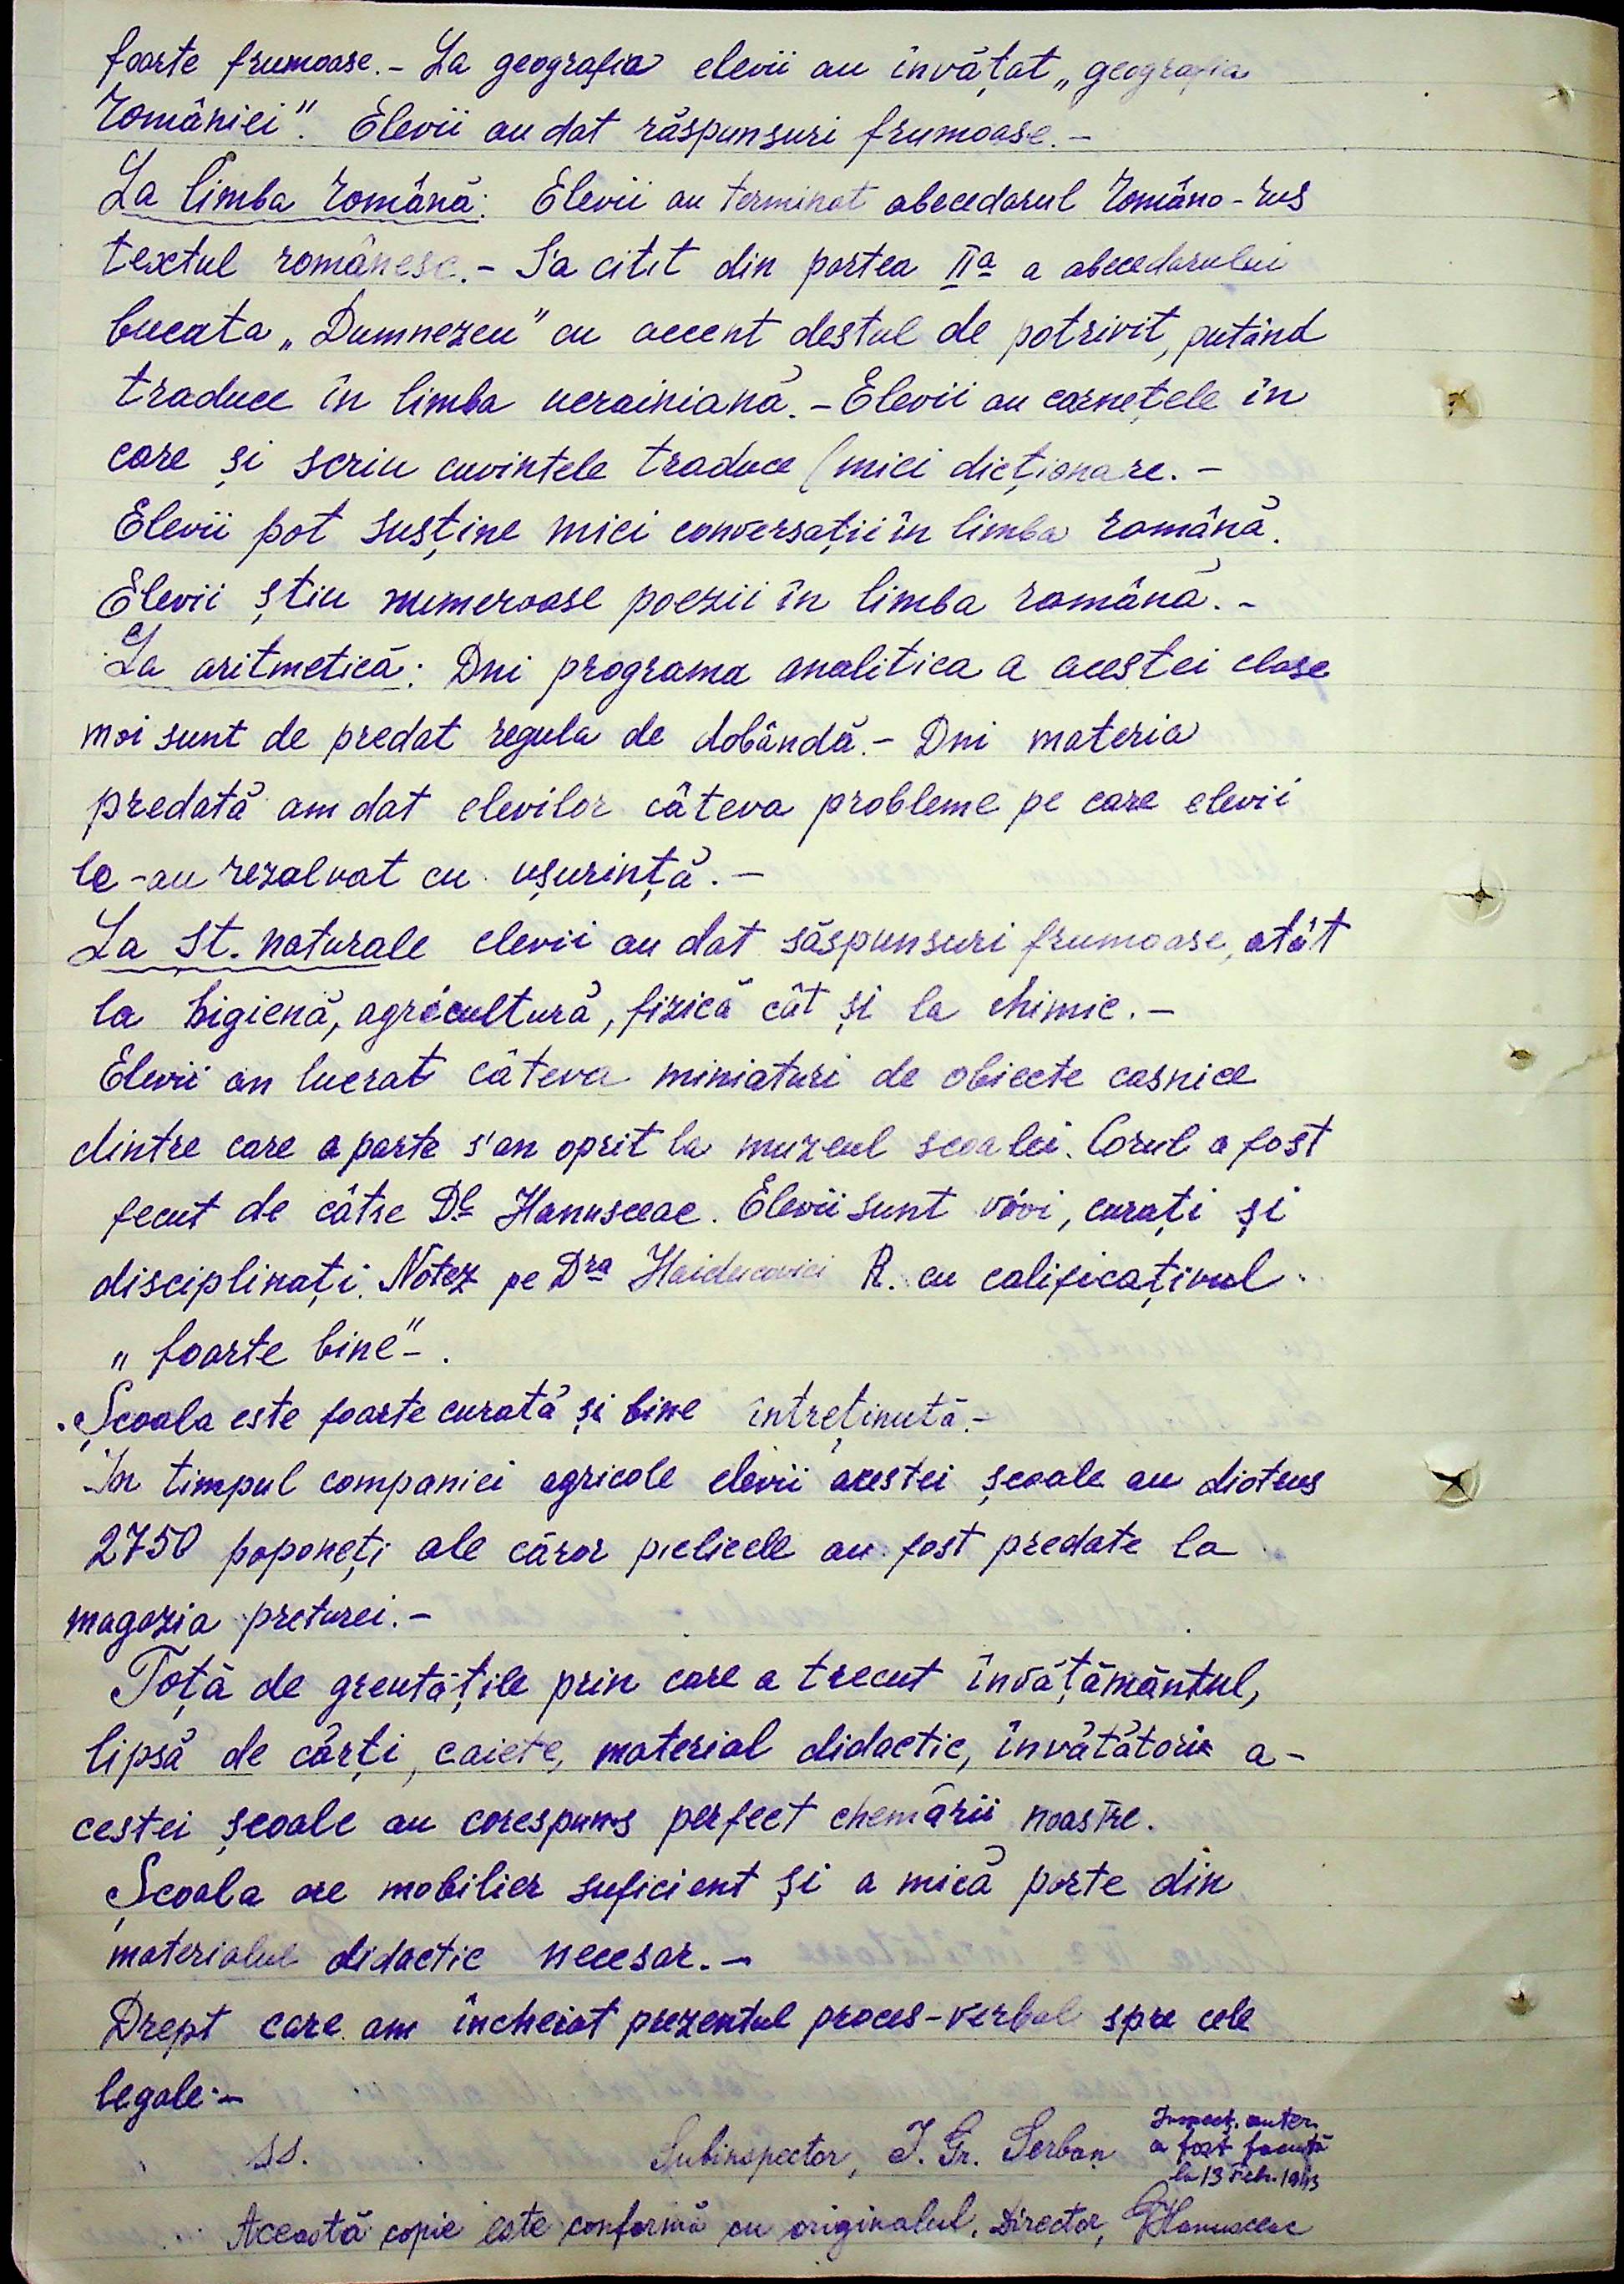 foarte frumoase.- La geografia elevii au învățat „geografia
României". Elevii au dat răspunsuri frumoase.-
La limba română: Elevii au terminat abecedarul româno-rus
textul românesc.- S'a citit din partea IIa a abecedarului
bucata „Dumnezeu" cu accent destul de potrivit, putând
traduce în limba ucrainiană.-Elevii au carnețele în
care și scriu cuvintele traduce (mici dicționare.-
Elevii pot susține mici conversații în limba română.
Elevii știu numeroase poezii în limba română.-
La aritmetică: Dni programa analitica a acestei clase
mai sunt de predat regula de dobândă.- Dni materia
predată am dat elevilor câteva probleme pe care elevii
le-au rezolvat cu ușurință.-
La șt. naturale elevii au dat săspunsuri frumoase, atât
la higienă, agricultură, fizică cât și la chimie.-
Elevii au lucrat câteva miniaturi de obiecte casnice
dintre care o parte s'au oprit la muzeul școalei. Corul a fost
fecut de câtre Dl Hanusceac. Elevii sunt vivi, curați și
disciplinați. Notez pe Dra Haiducovici R. cu calificațivul
„foarte bine"-.
Școala este foarte curată și bine întreținută.-
In timpul companiei agricole elevii acestei școale au distrus
2750 poponeți ale căror pielicele au fost predate la
magazia preturei.-
Toță de greutățile prin care a trecut învățământul,
lipsă de cărți, caiete, material didactic, învățătorii a-
cestei școale au corespuns perfect chemării noastre.
Școala are mobilier suficient și a mică parte din
materialul didactic necesar.-
Drept care am încheiat prezentul proces-verbal spre cele
legale.-
ss. Subinspector, I. Gr. Serban
Inspecț. anter.
a fost facută
la 13 Febr. 1943
Această copie este conformă cu originalul. Director, GHanusceac